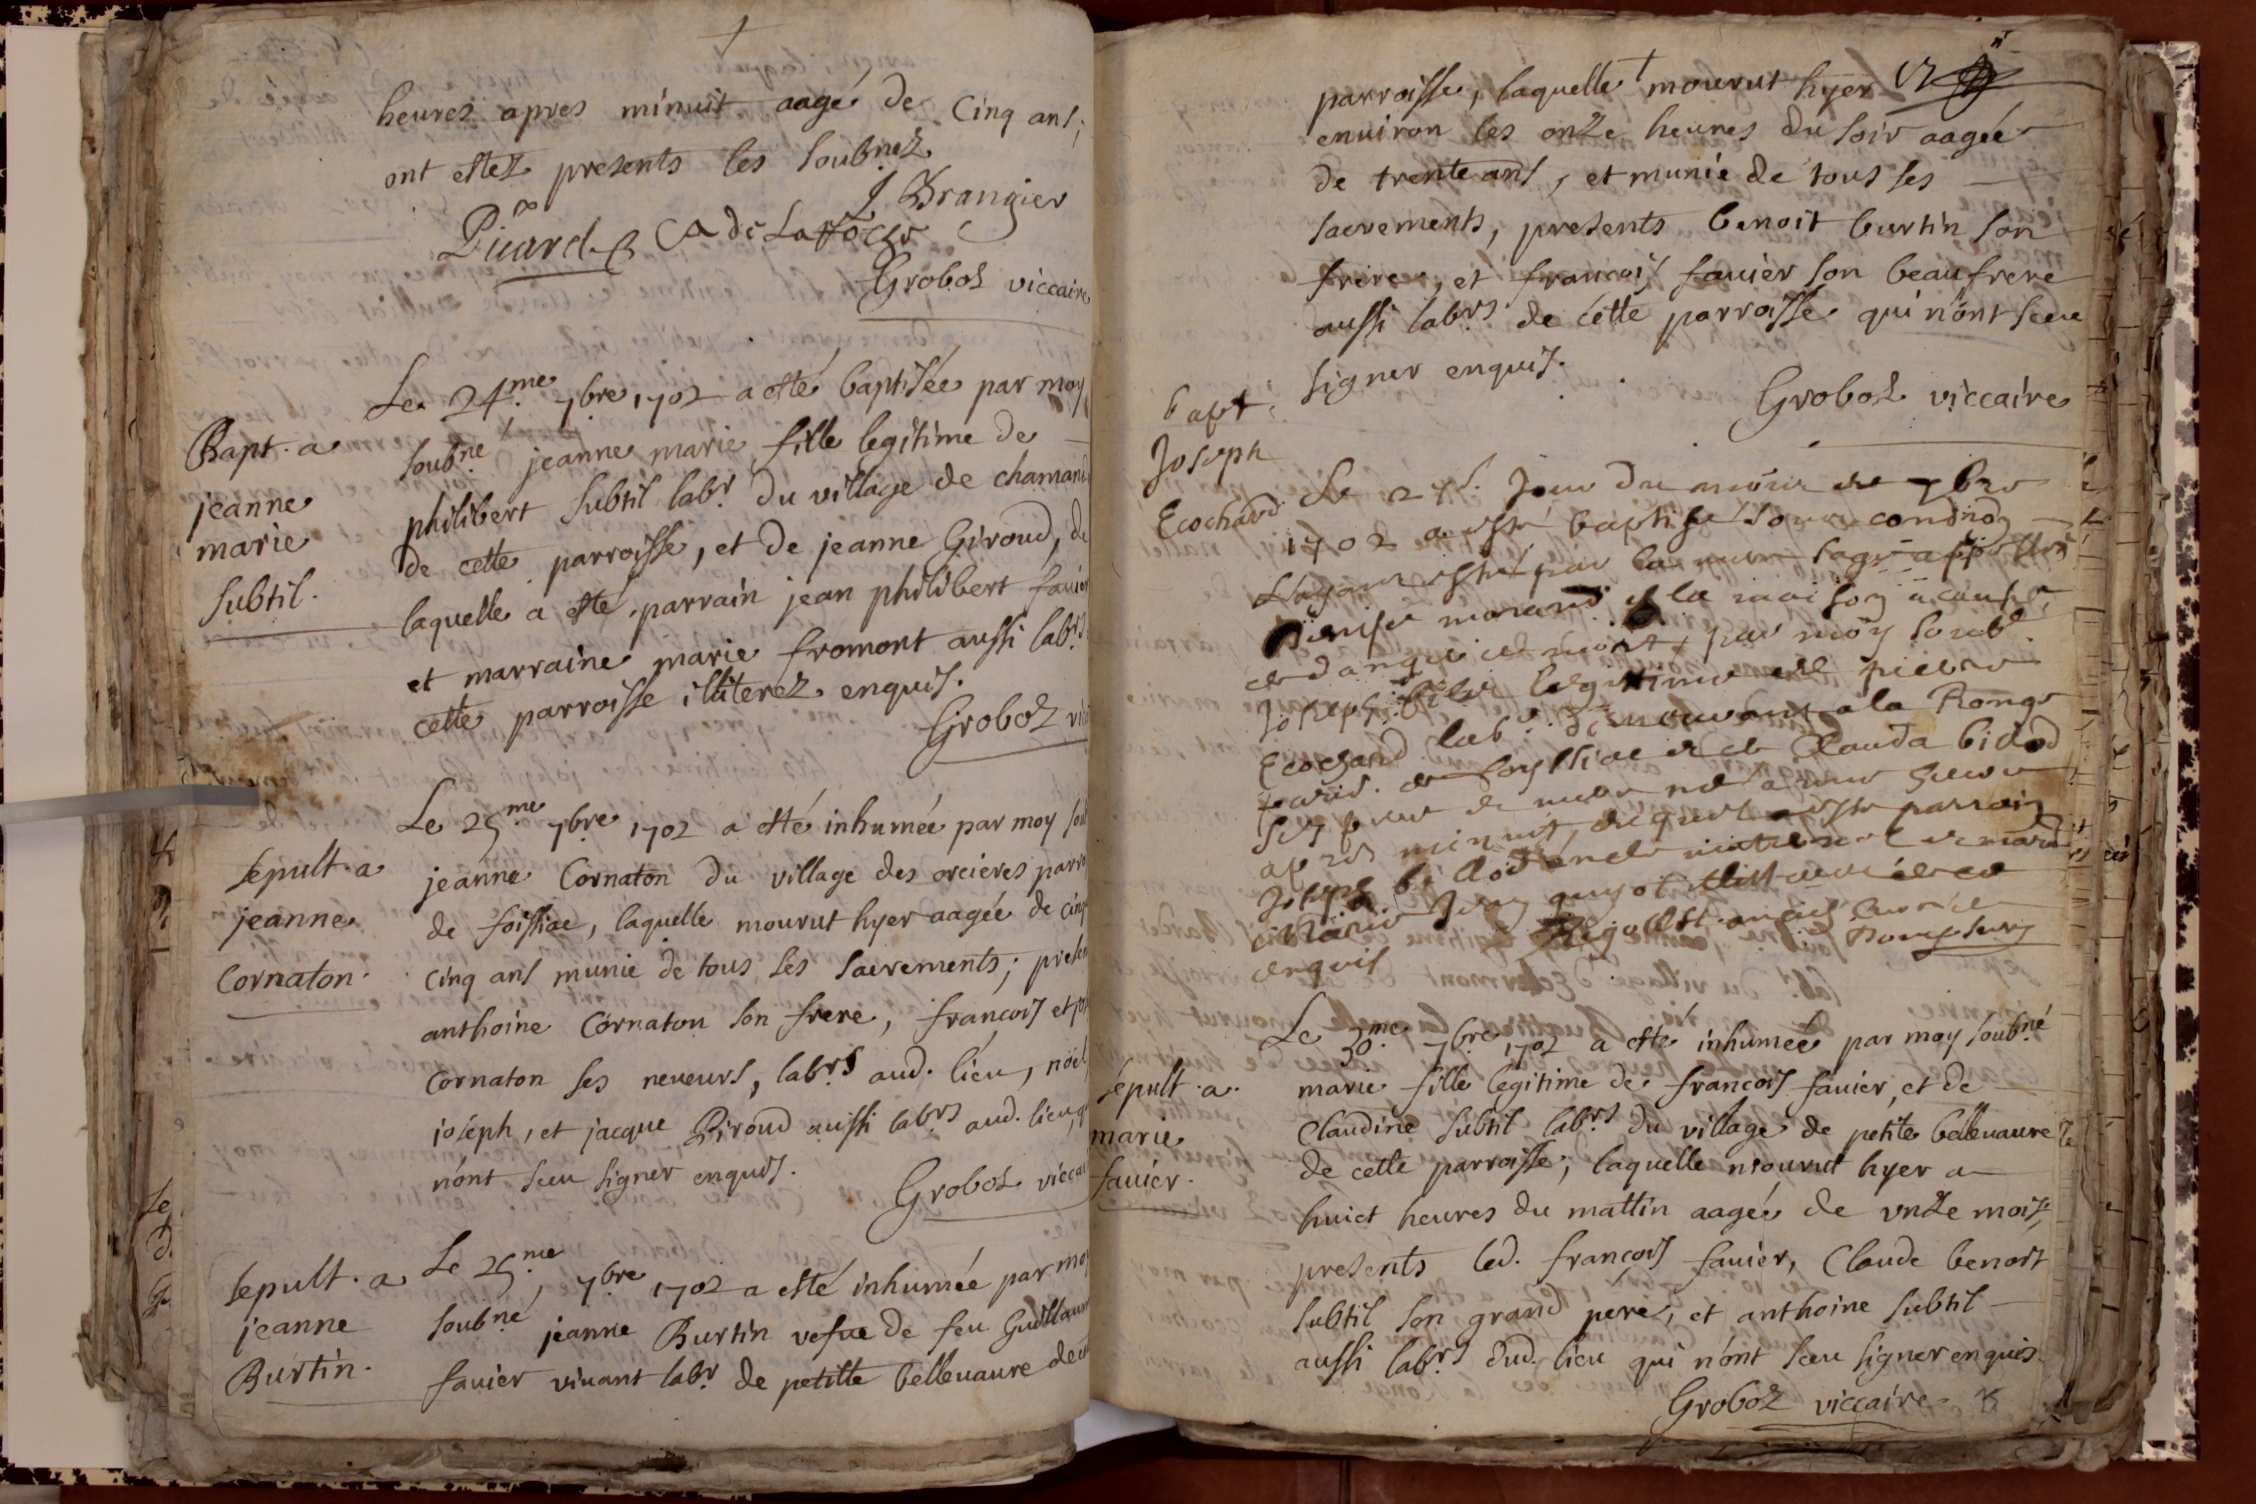 heures apres minuit aagé de Cinq ans;
ont estez presents les soubnez
J. Brangier
Picard C A De Laroche
Groboz viccaire
Le 24.me 7bre 1702 a esté baptisée par moy
Bapt. a
soubne jeanne marie fille legitime de
jeanne
philibert Subtil labr. du village de chamand
marie
de cette parroisse, et de jeanne Giroud, de
Subtil.
laquelle a esté parrain jean philibert favier
et marraine marie fromont aussi labrs.
cette parroisse illiterez enquis.
Groboz vic
Le 25.me 7bre 1702 a esté inhumée par moy soub
Sepult. a
jeanne Cornaton du village des orcieres parro
jeanne
de foissiac, laquelle mourut hyer aagée de cinq
Cornaton.
cinq ans munie de tous ses sacrements; presen
anthoine Cornaton son frere, francois et
Cornaton ses neveurs, labrs aud. lieu, noël
joseph, et jacque Piroud aussi labrs aud. lieu, q
n'ont sceu signer enquis.
Groboz viccai
Sepult. a
Le 25.me, 7bre 1702 a esté inhumée par moy
jeanne
soubné jeanne Burtin vefve de feu Guillaume
Burtin.
favier vivant labr de petitte bellevavre de
parroisse, laquelle mourut hyer
environ les onze heures du soir aagée
de trente ans, et munie de tous ses
sacrements, presents benoit burtin son
frere, et francois favier son beaufrere
aussi labrs de cette parroisse qui n'ont sceu
signer enquis.
Groboz viccaire
bapt.
Joseph
Ecochard
Le 27. Jour du mois de 7bre
1702 a esté baptisé soub condnon
L'ayant esté par la mere sage
Denise morand a la maison a cause
de danger de mort par moy soub.
Joseph fils legitime de pierre
Ecochard labr. demeurant a la Ronge
parr. de foyssiac et de Clauda bidod
ses pere et mere né a une heure
apres minuit, duquel a esté parrain
Joseph bidod oncle maternel et
enquis
Le 30.me 7bre 1702 a esté inhumée par moy soubné
Sepult. a.
marie fille legitime de francois favier, et de
marie
Claudine Subtil labrs du village de petite bellevavre
favier.
de cette parroisse, laquelle mourut hyer a
huict heures du mattin aagée de unze mois,
presents led. francois favier, Claude benoit
Subtil son grand pere, et anthoine Subtil
aussi labrs dud. lieu qui n'ont sceu signer enquis.
Groboz viccaire